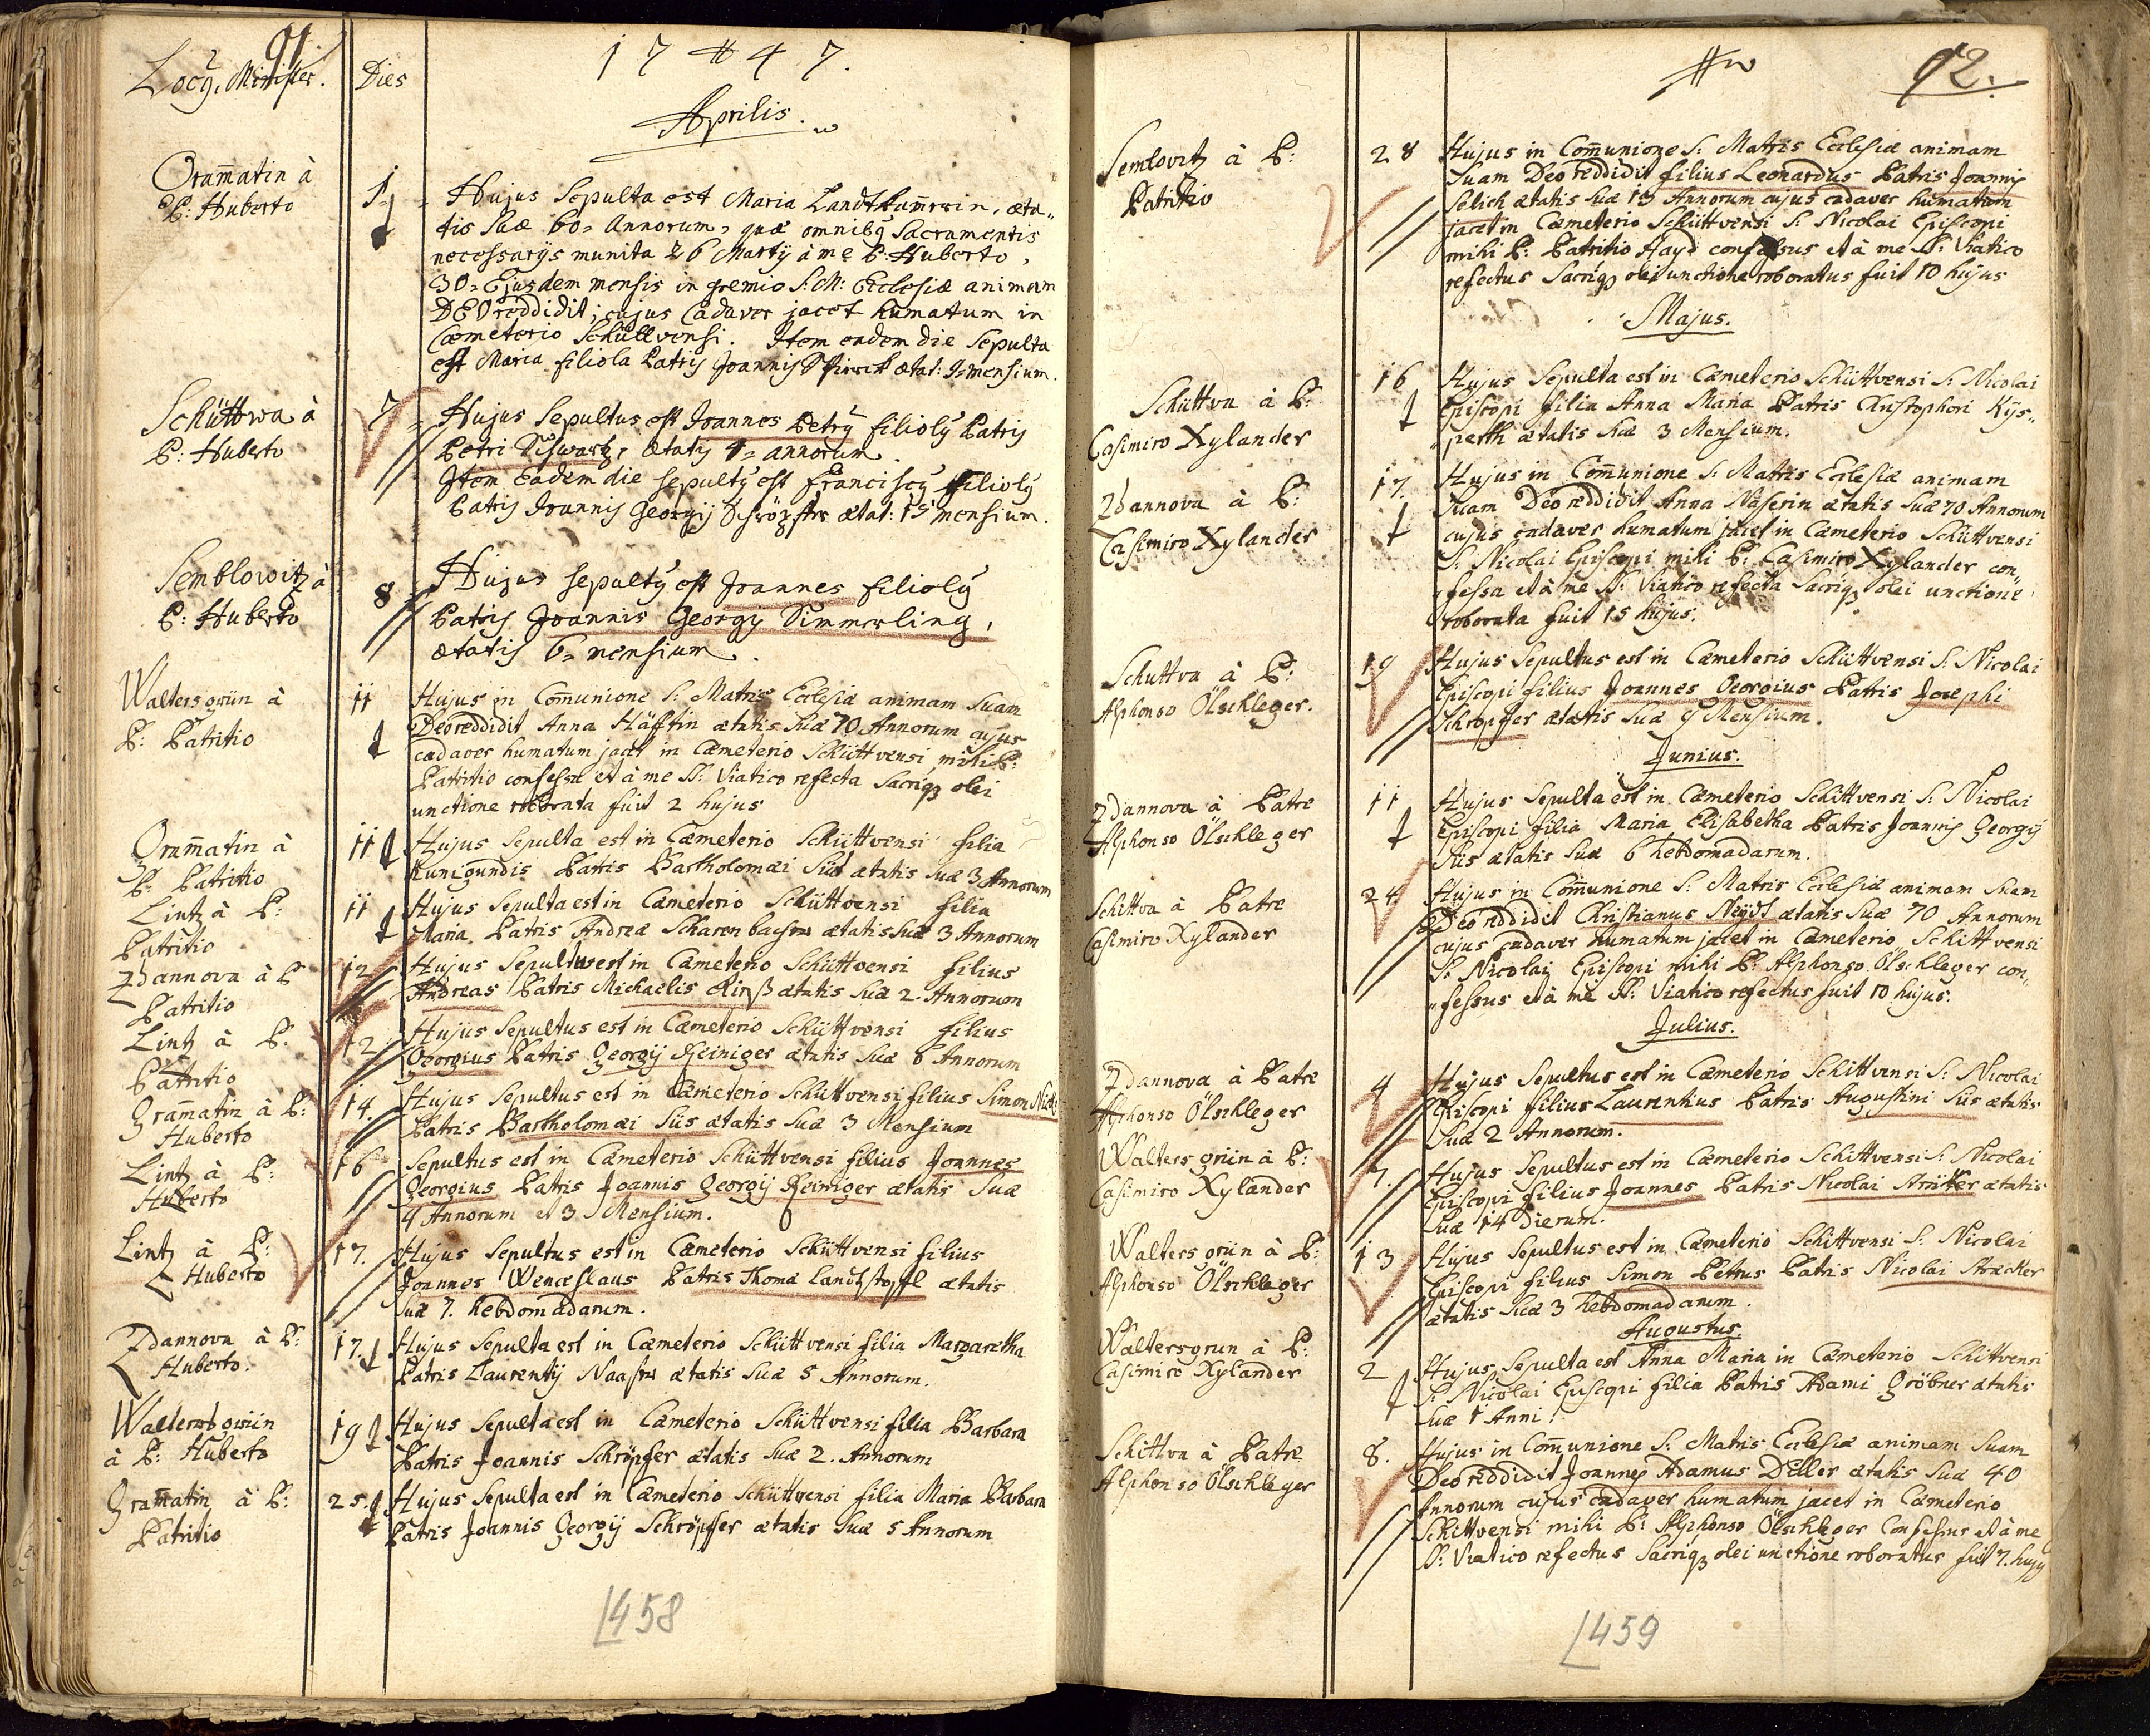 91.
Locus, Minister. Dies 1747.
Aprilis.
Gram̄atin à
P: Huberto
1. Hujus Sepulta est Maria Landtkam̄erin, æta„
tis Suæ 60 = Annorum, quæ omnibȝ Sacramentis
necessarys munita 26 Martÿ à me P: Huberto,
30 = Ejusdem mensis in gremio S: M: Ecclesiæ animam
DEO reddidit; cujus Cadaver jacet humatum in
Cæmeterio Schüttvensi. Item eadem die Sepulta
est Maria filiola Patris Joannis ætat: mensium.
Schüttwa à
P: Huberto
7 Hujus Sepultus est Joannes Petrÿ filiolȝ Patris
Petri Schwartz, ætatis 4 = annorum
Item Eadem die sepultȝ est Franciscȝ filiolȝ
Patris Joannis Georgij Schröpfer ætat: 15 mensium.
Semblowitz à
P: Huberto
8 Hujus sepultȝ est Joannes filiolȝ
Patris Joannis Georgij Simmerling,
ætatis 6 = mensium.
Waltersgrün à
P: Patritio
11 Hujus in Com̄unione S: Matris Ecclesiæ animam Suam
Deo reddidit Anna Häfftin ætatis Suæ 70 Annorum cujus
cadaver humatum jacet in Cæmeterio Schüttvensi mihi P:
Patritio confessa et à me SS: Viatico refecta Sacriqȝ olei
unctione roborata fuit 2 hujus
Gram̄atin à
P: Patritio
11 Hujus Sepulta est in Cæmeterio Schüttvensi filia
Kunigundis Patris Bartholomæi Süs ætatis Suæ 3 Annorum
Lintz à P:
Patritio
11 Hujus Sepulta est in Cæmeterio Schüttvensi filia
Maria Patris Andreæ Scharenbacher ætatis Suæ 3 Annorum
Zdannova à P
Patritio
12 Hujus Sepultus est in Cæmeterio Schüttvensi filius
Andreas Patris Michaelis Kirß ætatis Suæ 2. Annorum
Lintz à P:
Patritio
12 Hujus Sepultus est in Cæmeterio Schüttvensi filius
Georgius Patris Georgij Reiniger ætatis Suæ 6 Annorum
Gram̄atin à P:
Huberto
14. Hujus Sepultus est in Cæmeterio Schüttvensi filius Simon
Patris Bartholomæi Süs ætatis Suæ 3 Mensium
Lintz à P:
Huberto
16 Sepultus est in Cæmeterio Schüttvensi filius Joannes
Georgius Patris Joannis Georgij Reiniger ætatis Suæ
4 Annorum et 3 Mensium.
Lintz à P:
Huberto
17. Hujus Sepultus est in Cæmeterio Schüttvensi filius
Joannes Wenceslaus Patris Thomæ Landtstopfl ætatis
Suæ 7. hebdomadarum.
Zdannova à P:
Huberto.
17. Hujus Sepulta est in Cæmeterio Schüttvensi filia Margaretha
Patris Laurentij Naaser ætatis Suæ 5 Annorum.
Waltersgrün
à P: Huberto
19 Hujus Sepulta est in Cæmeterio Schüttvensi filia Barbara
Patris Joannis Schröpfer ætatis Suæ 2. Annorum
Gram̄atin à P:
Patritio
25. Hujus Sepulta est in Cæmeterio Schüttvensi filia Maria Barbara
Patris Joannis Georgij Schröpfer ætatis Suæ 5 Annorum
458
92.
Semlovitz à P:
Patritio
28 Hujus in Com̄unione S: Matris Ecclesiæ animam
Suam Deo reddidit filius Leonardus Patris Joannis
Selich ætatis Suæ 13 Annorum cujus cadaver humatum
jacet in Cæmeterio Schüttvensi S: Nicolai Episcopi
mihi P: Patritio Hayd confessus et à me SS: Viatico
refectus Sacriqȝ olei unctione roboratus fuit 10 hujus
Majus.
Schüttva à P:
Casimiro Xylander
16 Hujus Sepulta est in Cæmeterio Schüttvensi S: Nicolai
Episcopi filia Anna Maria Patris Christophori Kÿs„
„perth ætatis Suæ 3 Mensium.
Zdannova à P:
Casimiro Xylander
17. Hujus in Com̄unione S: Matris Ecclesiæ animam
Suam Deo reddidit Anna Näserin ætatis Suæ 70 Annorum
cujus cadaver humatum jacet in Cæmeterio Schüttvensi
S: Nicolai Episcopi mihi P: Casimiro Xylander con„
fessa et à me SS: Viatico refecta Sacriqȝ olei unctione
roborata fuit 15 hujus.
Schuttva à P:
Alphonso Ölschleger.
19 Hujus Sepultus est in Cæmeterio Schüttvensi S: Nicolai
Episcopi filius Joannes Georgius Patris Josephi
Schropffer ætatis Suæ 9 Mensium.
Junius.
Zdannova à Patre
Alphonso Ölschleger
11 Hujus Sepulta est in Cæmeterio Schittvensi S: Nicolai
Episcopi filia Maria Elisabetha Patris Joannis Georgij
Siis ætatis Suæ 6 hebdomadarum.
Schittva à Patre
Casimiro Xylander
24. Hujus in Com̄unione S: Matris Ecclesiæ animam Suam
Deo reddidit Christianus Neÿdl ætatis Suæ 70 Annorum
cujus cadaver humatum jacet in Cæmeterio Schittvensi
S: Nicolaij Episcopi mihi P: Alphonso Ölschleger con„
„fessus et à me SS: Viatico refectus fuit 10 hujus.
Julius.
Zdannova à Patre
Alphonso Ölschleger
4 Hujus Sepultus est in Cæmeterio Schittvensi S: Nicolai
Episcopi filius Laurentius Patris Augustini Siis ætatis
Suæ 2 Annorum.
Waltersgriin à P:
Casimiro Xylander
7. Hujus Sepultus est in Cæmeterio Schittvensi S: Nicolai
Episcopi filius Joannes Patris Nicolai ætatis
Suæ 14 Dierum.
Waltersgriin à P:
Alphonso Ölschleger
13 Hujus Sepultus est in Cæmeterio Schittvensi S: Nicolai
Episcopi filius Simon Petrus Patris Nicolai Stracker
ætatis Suæ 3 hebdomadarum.
Augustus.
Waltersgrun à P:
Casimiro Xylander
2 Hujus Sepulta est Anna Maria in Cæmeterio Schittvensi
S: Nicolai Episcopi filia Patris Adami Gröbner ætatis
Suæ 1 Anni.
Schittva à Patre
Alphonso Ölschleger
8. Hujus in Com̄unione S: Matris Ecclesiæ animam Suam
Deo reddidit Joannes Adamus Diller ætatis Suæ 40
Annorum cujus cadaver humatum jacet in Cæmeterio
Schittvensi mihi P: Alphonso Ölschleger Confessus et à me
SS: Viatico refectus Sacriqȝ olei unctione roboratus fuit 7. hujȝ
459